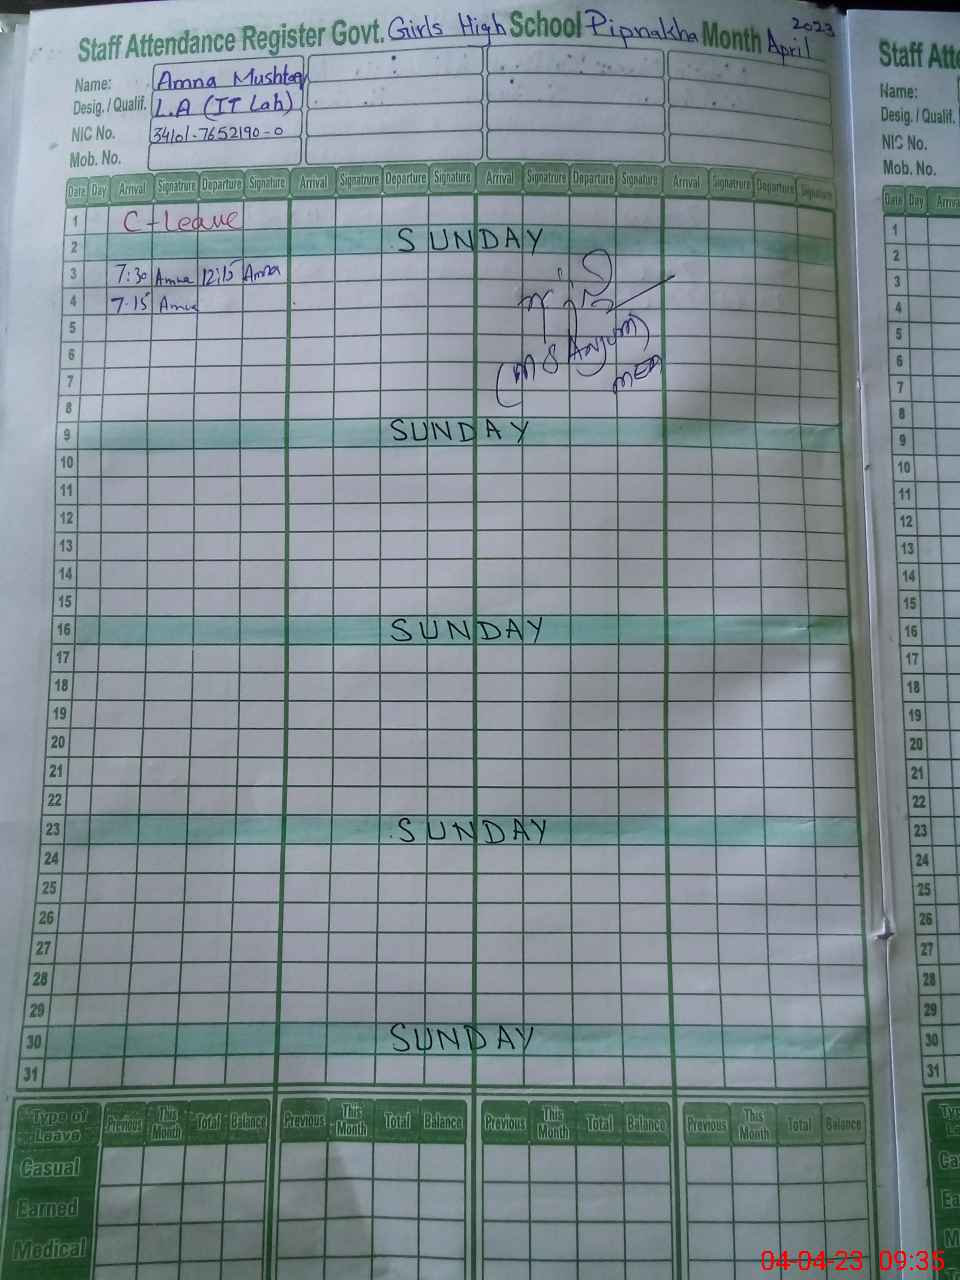 Staff Attendance Register Govt. Girls High School Pipnakha Month April 2023
Name: Amna Mushtaq
Desig. / Qualif. L.A (IT Lab)
NIC No. 34101-7652190-0
Mob. No.
Date Day Arrival Signatrure Departure Signature Arrival Signatrure Departure Signature Arrival Signatrure Departure Signature Arrival Signatrure Departure Signature
1 C-Leave
2 SUNDAY
3 7:30 Amna 12:15 Amna
4 7-15 Amna
5
6
(M S Anjum)
7
MEA
8
9 SUNDAY
10
11
12
13
14
15
16 SUNDAY
17
18
19
20
21
22
23 SUNDAY
24
25
26
27
28
29
30 SUNDAY
31
Type of Leave Previous This Month Total Balance Previous This Month Total Balance Previous This Month Total Balance Previous This Month Total Balance
Casual
Earned
Medical
Staff Atte
Name:
Desig. / Qualif.
NIC No.
Mob. No.
Date Day Arriva
1
2
3
4
5
6
7
8
9
10
11
12
13
14
15
16
17
18
19
20
21
22
23
24
25
26
27
28
29
30
31
Ty
L
Ca
Ea
M
04-04-23 09:35